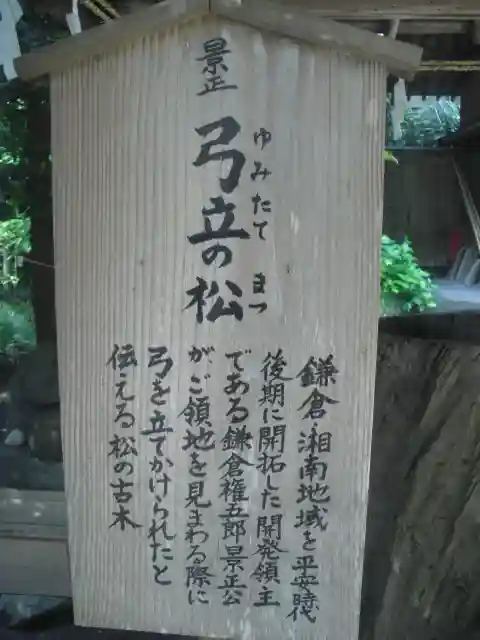 景正
弓立の松
ゆみたて まつ
鎌倉・湘南地域を平安時代
後期に開拓した開発領主
である鎌倉権五郎景正公
が、ご領地を見まわる際に
弓を立てかけられたと
伝える松の古木